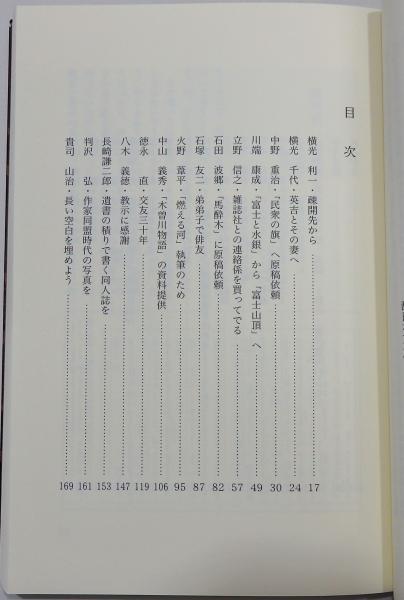 目次
横光 利一・疎開先から 17
横光 千代・英吉とその妻へ 24
中野 重治・「民衆の旗」へ原稿依頼 30
川端 康成・「富士と水銀」から「富士山頂」へ 49
立野 信之・雑誌社との連絡係を買ってでる 57
石田 波郷・「馬酔木」に原稿依頼 82
石塚 友二・弟弟子で俳友 87
火野 葦平・「燃える河」執筆のため 95
中山 義秀・「木曽川物語」の資料提供 106
徳永 直・交友三十年 119
八木 義徳・教示に感謝 147
長崎謙二郎・遺書の積りで書く同人誌を 153
判沢 弘・作家同盟時代の写真を 161
貴司 山治・長い空白を埋めよう 169